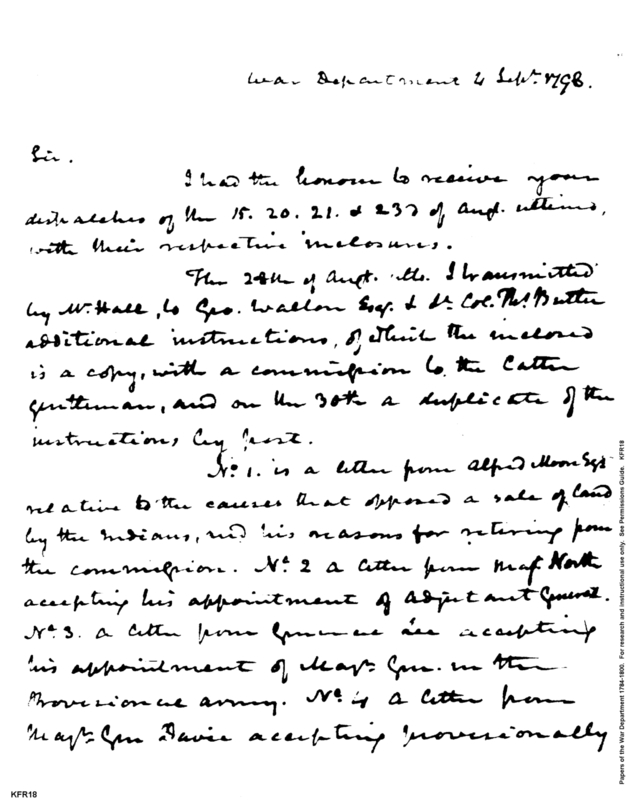 War Department 4 Sept. 1798.
Sir.
I had the honour to receive your
dispatches of the 15. 20. 21. & 23d of Augt. ultimo,
with their respective inclosures.
The 28th of Augt. ulto. I transmitted
by Mr. Hall, to Geo. Walton Esqr. & Lt. Col. Ths. Butler
additional instructions, of which the inclosed
is a copy, with a commission to the latter
gentleman, and on the 30th a duplicate of the
instructions by post.
No. 1. is a letter from Alfred Moore Esqr
relative to the causes that opposed a sale of land
by the Indians, and his reasons for retiring from
the commission. No. 2 a letter from Majr. North
accepting his appointment of Adjutant General.
No. 3. a letter from General Lee accepting
his appointment of Majr. Gen. in the
Provisional army. No. 4 a letter from
Majr. Gen Davie accepting provisionally
KFR18
Papers of the War Department 1784-1800. For research and instructional use only. See Permissions Guide. KFR18